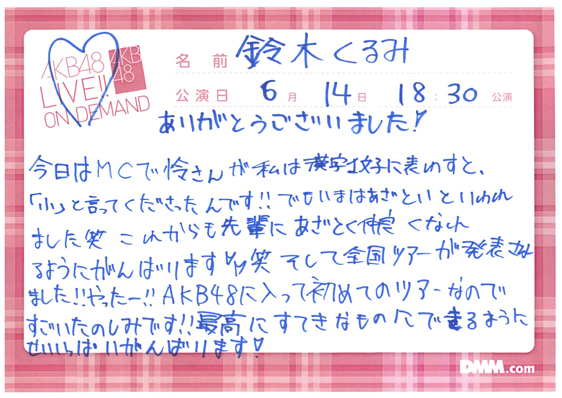 AKB48
LIVE!!
ON DEMAND
AKB
48
名前 鈴木くるみ
公演日 6月 14日 18:30 公演
ありがとうございました!
今日はMCで怜さんが私は漢字1文字に表めすと、
「小」と言ってくださったんです!!でもいまはあざといといわれ
ました笑 これからも先輩にあざとく仲良くなれ
るようにがんばります笑 そして全国ツアーが発表され
ました!!やったー!!AKB48に入って初めてのツアーなので
すごいたのしみです!!最高にすてきなものにできるように
せいいっぱいがんばります!
DMM.com